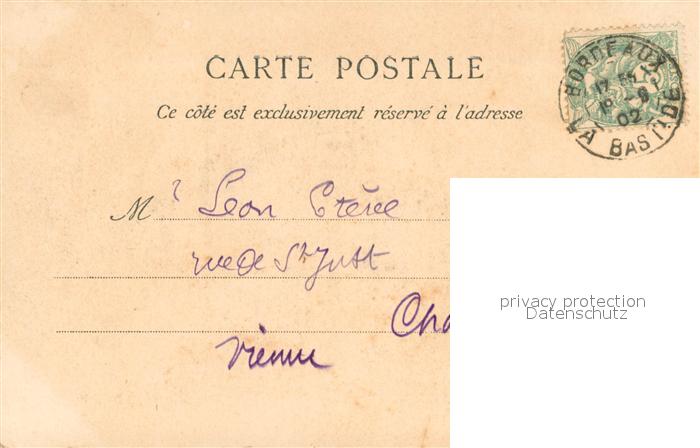 CARTE POSTALE
Ce côté est exclusivement réservé à l'adresse
BORDEAUX
17 02
LA BASTIDE
M r Leon
rue de St Just
Cha
Vienne
privacy protection
Datenschutz